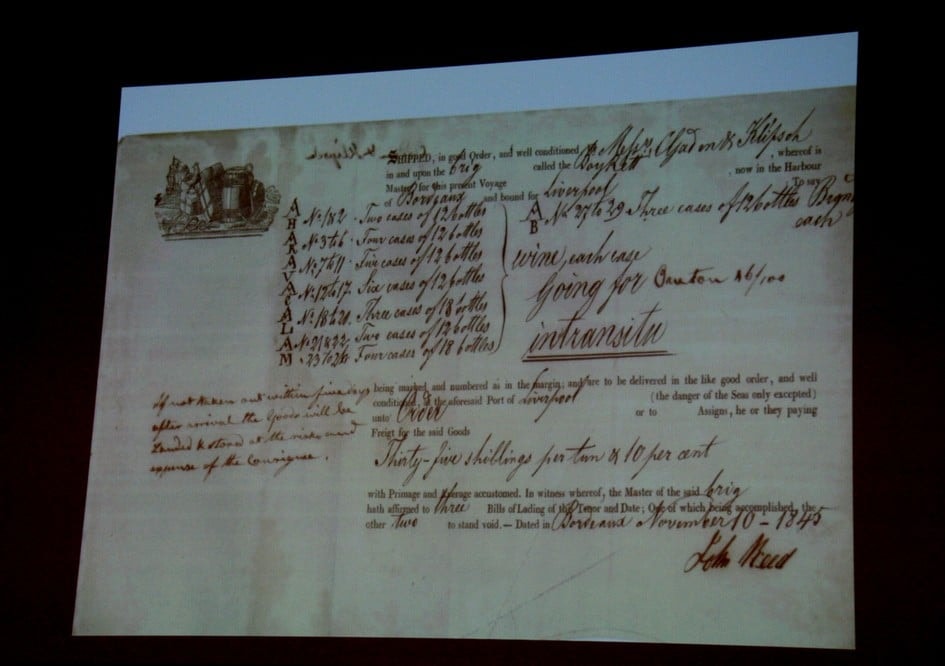 SHIPPED, in good Order, and well conditioned Messrs. & Klipsch
in and upon the brig called the Boykett, whereof is
Master for this present Voyage, now in the Harbour
of Bordeaux and bound for Liverpool To say
A No. 1 & 2. Two cases of 12 bottles
H No. 3 to 6. Four cases of 12 bottles
No. 7 to 11. Five cases of 12 bottles
No. 12 to 17. Six cases of 12 bottles
No. 18 to 20. Three cases of 18 bottles
L No. 21 & 22. Two cases of 12 bottles
M 23 to 26 Four cases of 18 bottles
A B No. 27 to 29 Three cases of 12 bottles
each
wine, each case
Going for
intransitu
If not taken out within five days
after arrival the Goods will be
Landed & stored at the risks and
expense of the Consignee.
being marked and numbered as in the margin; and are to be delivered in the like good order, and well
conditioned, at the aforesaid Port of Liverpool (the danger of the Seas only excepted)
unto Order or to Assigns, he or they paying
Freigt for the said Goods
Thirty-five shillings per tun & 10 per cent
with Primage and Average accustomed. In witness whereof, the Master of the said brig
hath affirmed to three Bills of Lading of this Tenor and Date; One of which being accomplished, the
other two to stand void. — Dated in Bordeaux November 10 - 1845
John